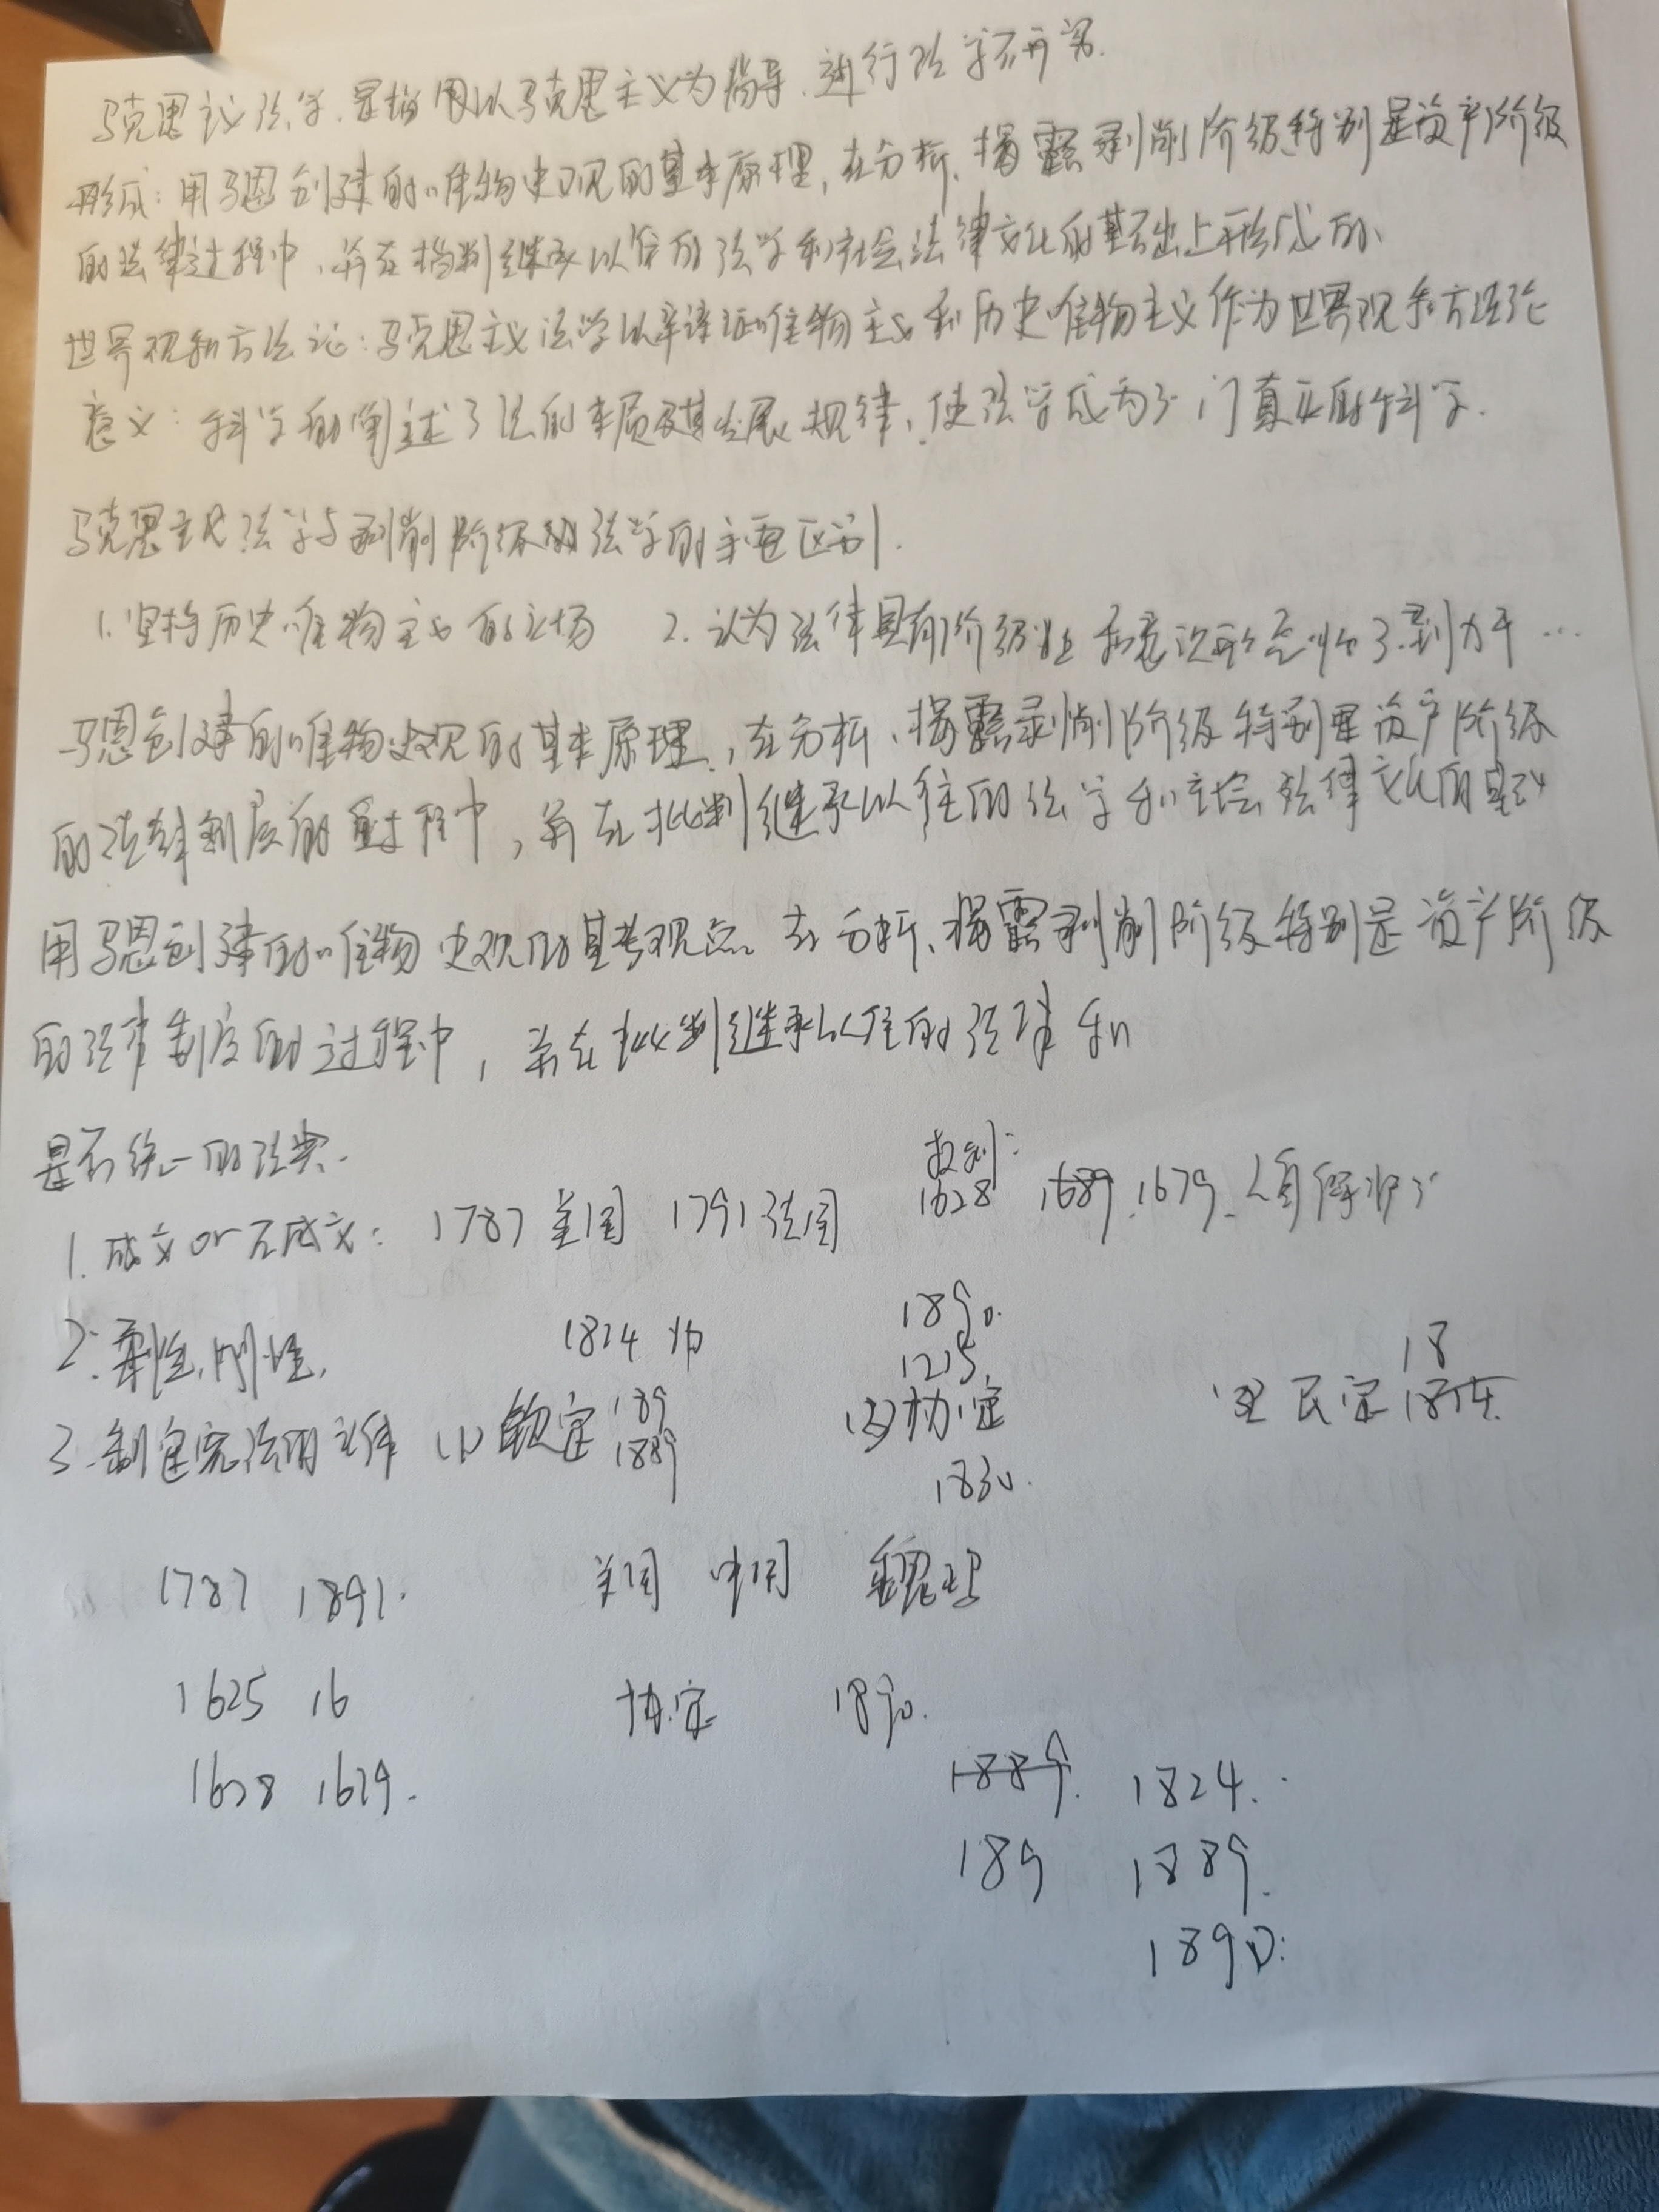 马克思主义法学.是指用以马克思主义为指导.进行法学研究.
形成:用马恩创建的唯物史观的基本原理,在分析、揭露剥削阶级特别是资产阶级
的法律过程中,并在批判继承以往的法学和社会法律文化的基础上形成的、
世界观和方法论:马克思主义法学以辩证唯物主义和历史唯物主义作为世界观和方法论
意义:科学的阐述了法的本质及其发展规律,使法学成为了一门真正的科学.
马克思主义法学与剥削阶级的法学的主要区别.
1.坚持历史唯物主义的立场 2.认为法律具有阶级性和意识形态性 3. ...
马恩创建的唯物史观的基本原理,在分析、揭露剥削阶级特别是资产阶级
的法律制度的过程中,并在批判继承以往的法学和社会法律文化的基础
用马恩创建的唯物史观的基本观点。在分析、揭露剥削阶级特别是资产阶级
的法律制度的过程中,并在批判继承以往的法律和
是否统一的法典.
权利:
1.成文or不成文: 1787美国 1791法国 1628 1689.1679.人身保护
1890.
2.柔性.刚性. 1814 1215
3.制定宪法的主体 (1)钦定 189 1889 协定 1830. 民定 18
1787 1891. 美国 中国 魏玛
1625 16 协定 1890.
1628 1679. 1889. 1824.
189 1889.
1890.